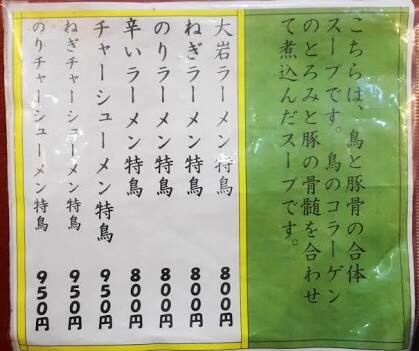 こちらは、鳥と豚骨の合体
スープです。鳥のコラーゲン
のとろみと豚の骨髄を合わせ
て煮込んだスープです。
大岩ラーメン特鳥 800円
ねぎラーメン特鳥 800円
のりラーメン特鳥 800円
辛いラーメン特鳥 800円
チャーシューメン特鳥 950円
ねぎチャーシューメン特鳥 950円
のりチャーシューメン特鳥 950円